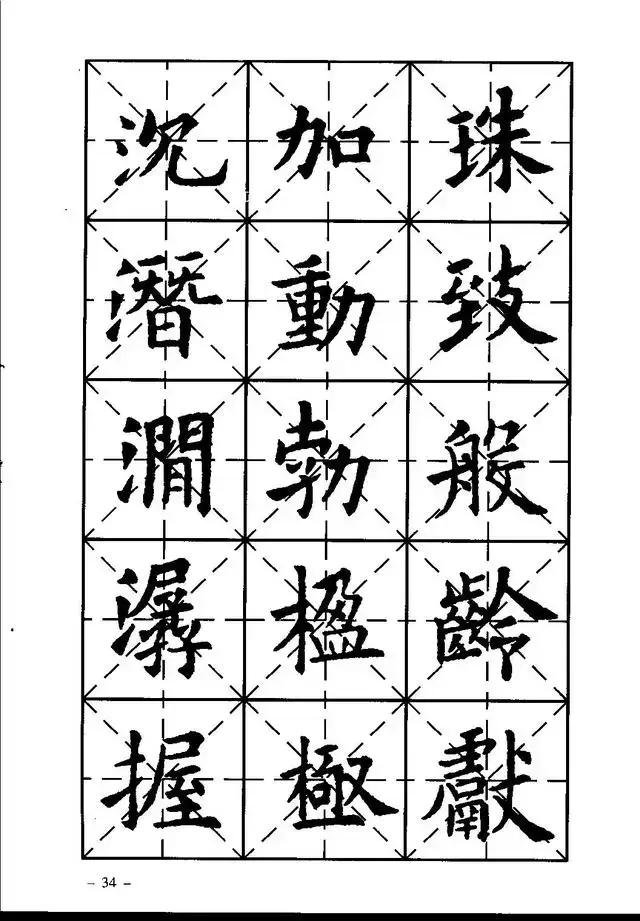 珠致般齡獻
加動勃楹極
沉潛澗潺握
- 34 -